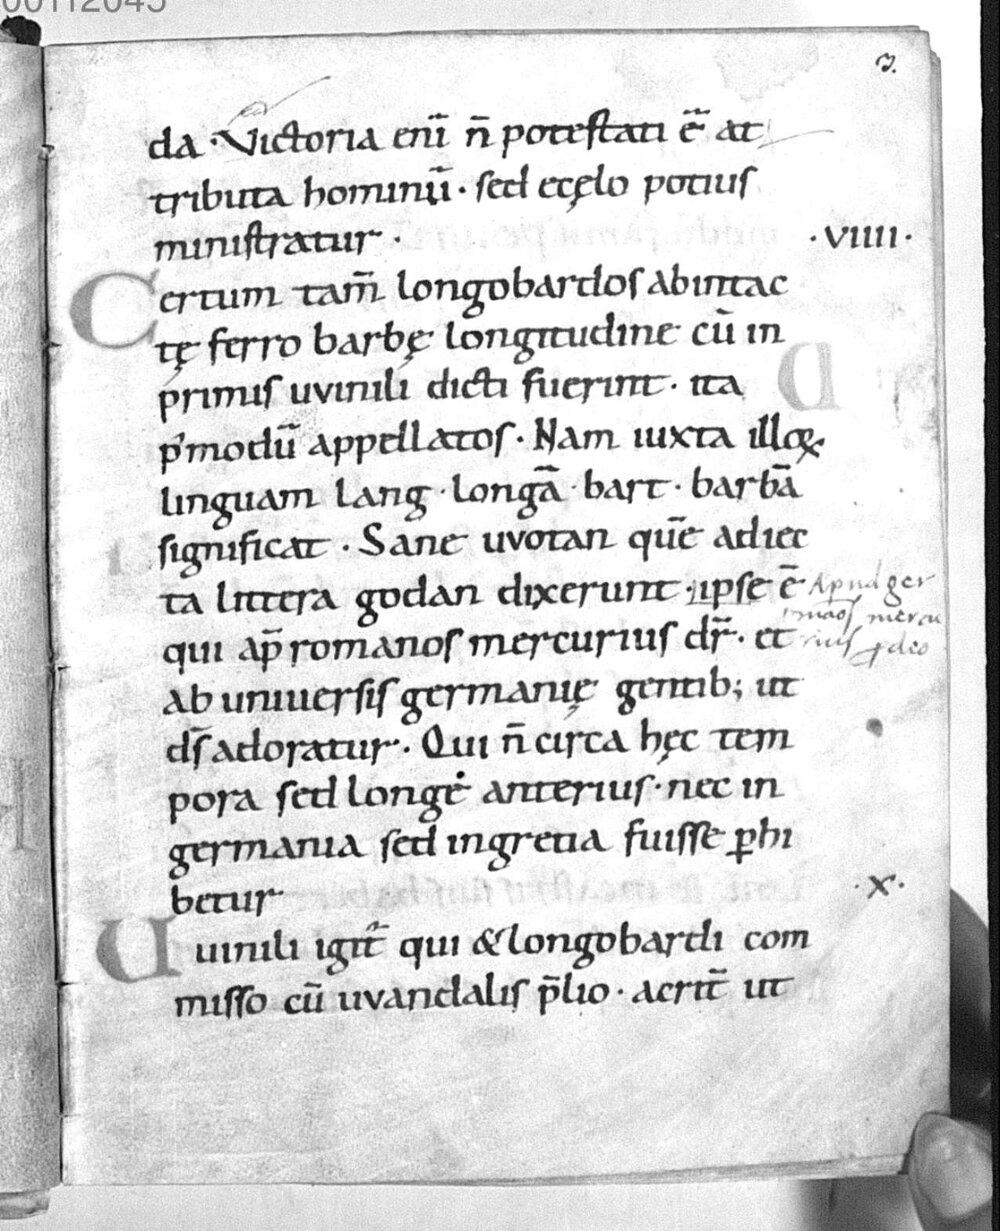 00112045
3.
da · Victoria eni͞ n̄ potestati ē at
tributa hominū · sed ecęlo potius
ministratur · ·VIIII·
Certum tam̄ longobardos abintac
tę ferro barbę longitudine cū in
primis uvinili dicti fuerint · ita
p'modū appellatos · Nam iuxta illoꝝ
linguam lang · longā · bart · barbā
significat · Sane uvotan quē adiec
ta littera godan dixerunt · ipse ē
Apud ger
manos mercu
rius ꝓ deo
qui ap̄ romanos mercurius dr̄ · et
ab uniuersis germanię gentib; ut
ds̄ adoratur · Qui n̄ circa hęc tem
pora sed longe anterius · nec in
germania sed in gretia fuisse ꝑhi
betur ·X·
Uuinili igit̄ qui & longobardi com
misso cū uvandalis p̄lio · acrit̄ ut